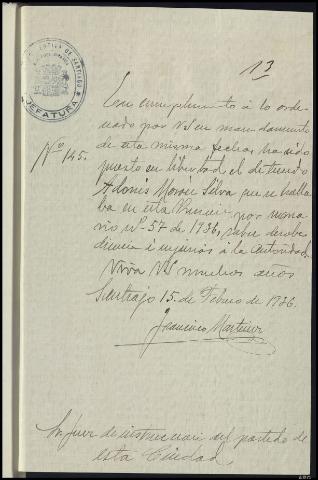 PRISION PREVENTIVA DE SANTIAGO
JEFATURA
13
Nº 145.
En cumplimiento á lo orde-
nado por VS en mandamiento
de esta misma fecha, ha sido
puesto en libertad el detenido
Adonis Silva que se halla
ba en esta por suma
rio nº 57 de 1936, sobre desobe
diencia é injurias á la Autoridad.
Viva VS muchos años
Santiago 15 de Febrero de 1936.
Francisco Martinez
Sr. Juez de instruccion del partido de
esta Ciudad.